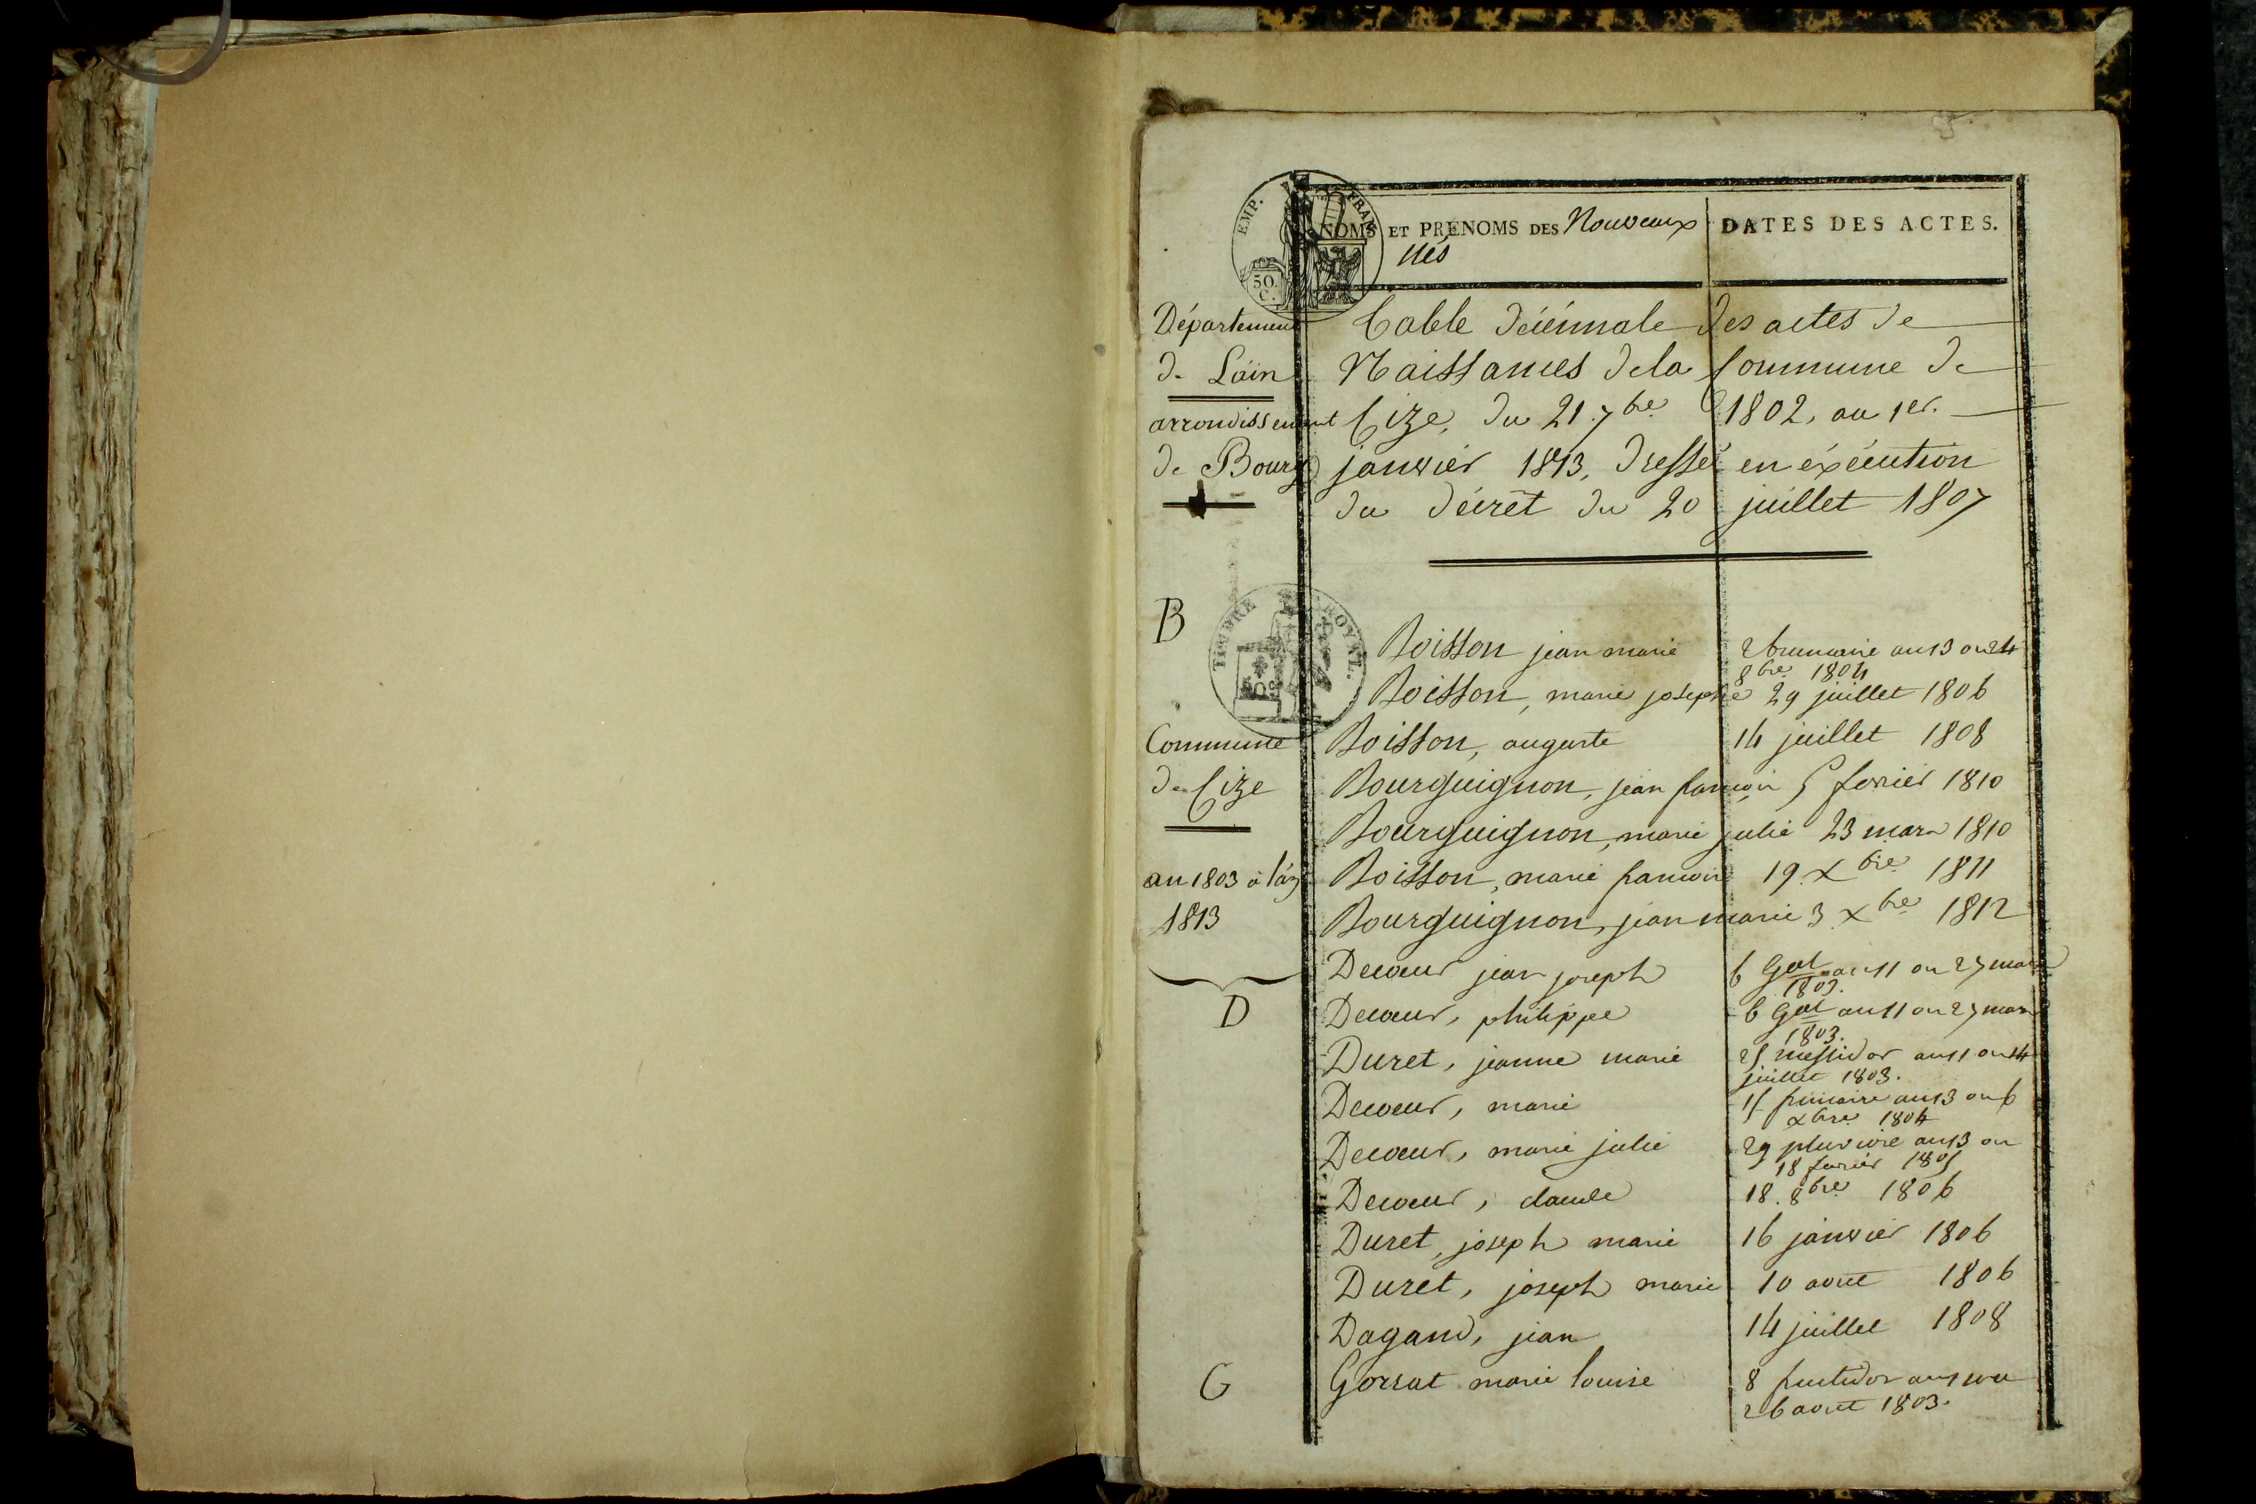 EMP. FRAN
50. C.
NOMS ET PRÉNOMS DES Nouveaux DATES DES ACTES.
nés
Département
de Láin
arrondissement
de Bourg
Table décénnale des actes de
Naissances dela Commune de
Cize, du 21 7bre 1802, au 1er.
janvier 1813, dressé en éxécution
du décret du 20 juillet 1807
B
TIMBRE ROYAL.
Commune
de Cize
an 1803 à l'an
1813
Boisson jean marie 2 brumaire an 13 ou 24
8bre 1804
Boisson, marie josephe 29 juillet 1806
Boisson, auguste 14 juillet 1808
Bourguignon, jean françois 5 fevrier 1810
Bourguignon, marie julie 23 mars 1810
Boisson, marie françoise 19. Xbre 1811
Bourguignon, jean marie 3 Xbre 1812
D
Decœur jean joseph 6 Gal an 11 ou 27 mars
1803.
Decœur, philippe 6 Gal an 11 ou 27 mars
1803.
Duret, jeanne marie 25 messidor an 11 ou 14
juillet 1803.
Decœur, marie 15 frimaire an 13 ou 6
xbre 1804
Decœur, marie julie 29 pluviose an 13 ou
18 fevrier 1805
Decœur, claude 18. 8bre 1806
Duret, joseph marie 16 janvier 1806
Duret, joseph marie 10 aout 1806
Dagand, jean 14 juillet 1808
G
Gorsat marie louise 8 fructidor an 11 ou
26 aout 1803.